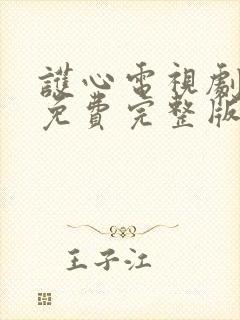 護心電視劇
免費完整版
王子江